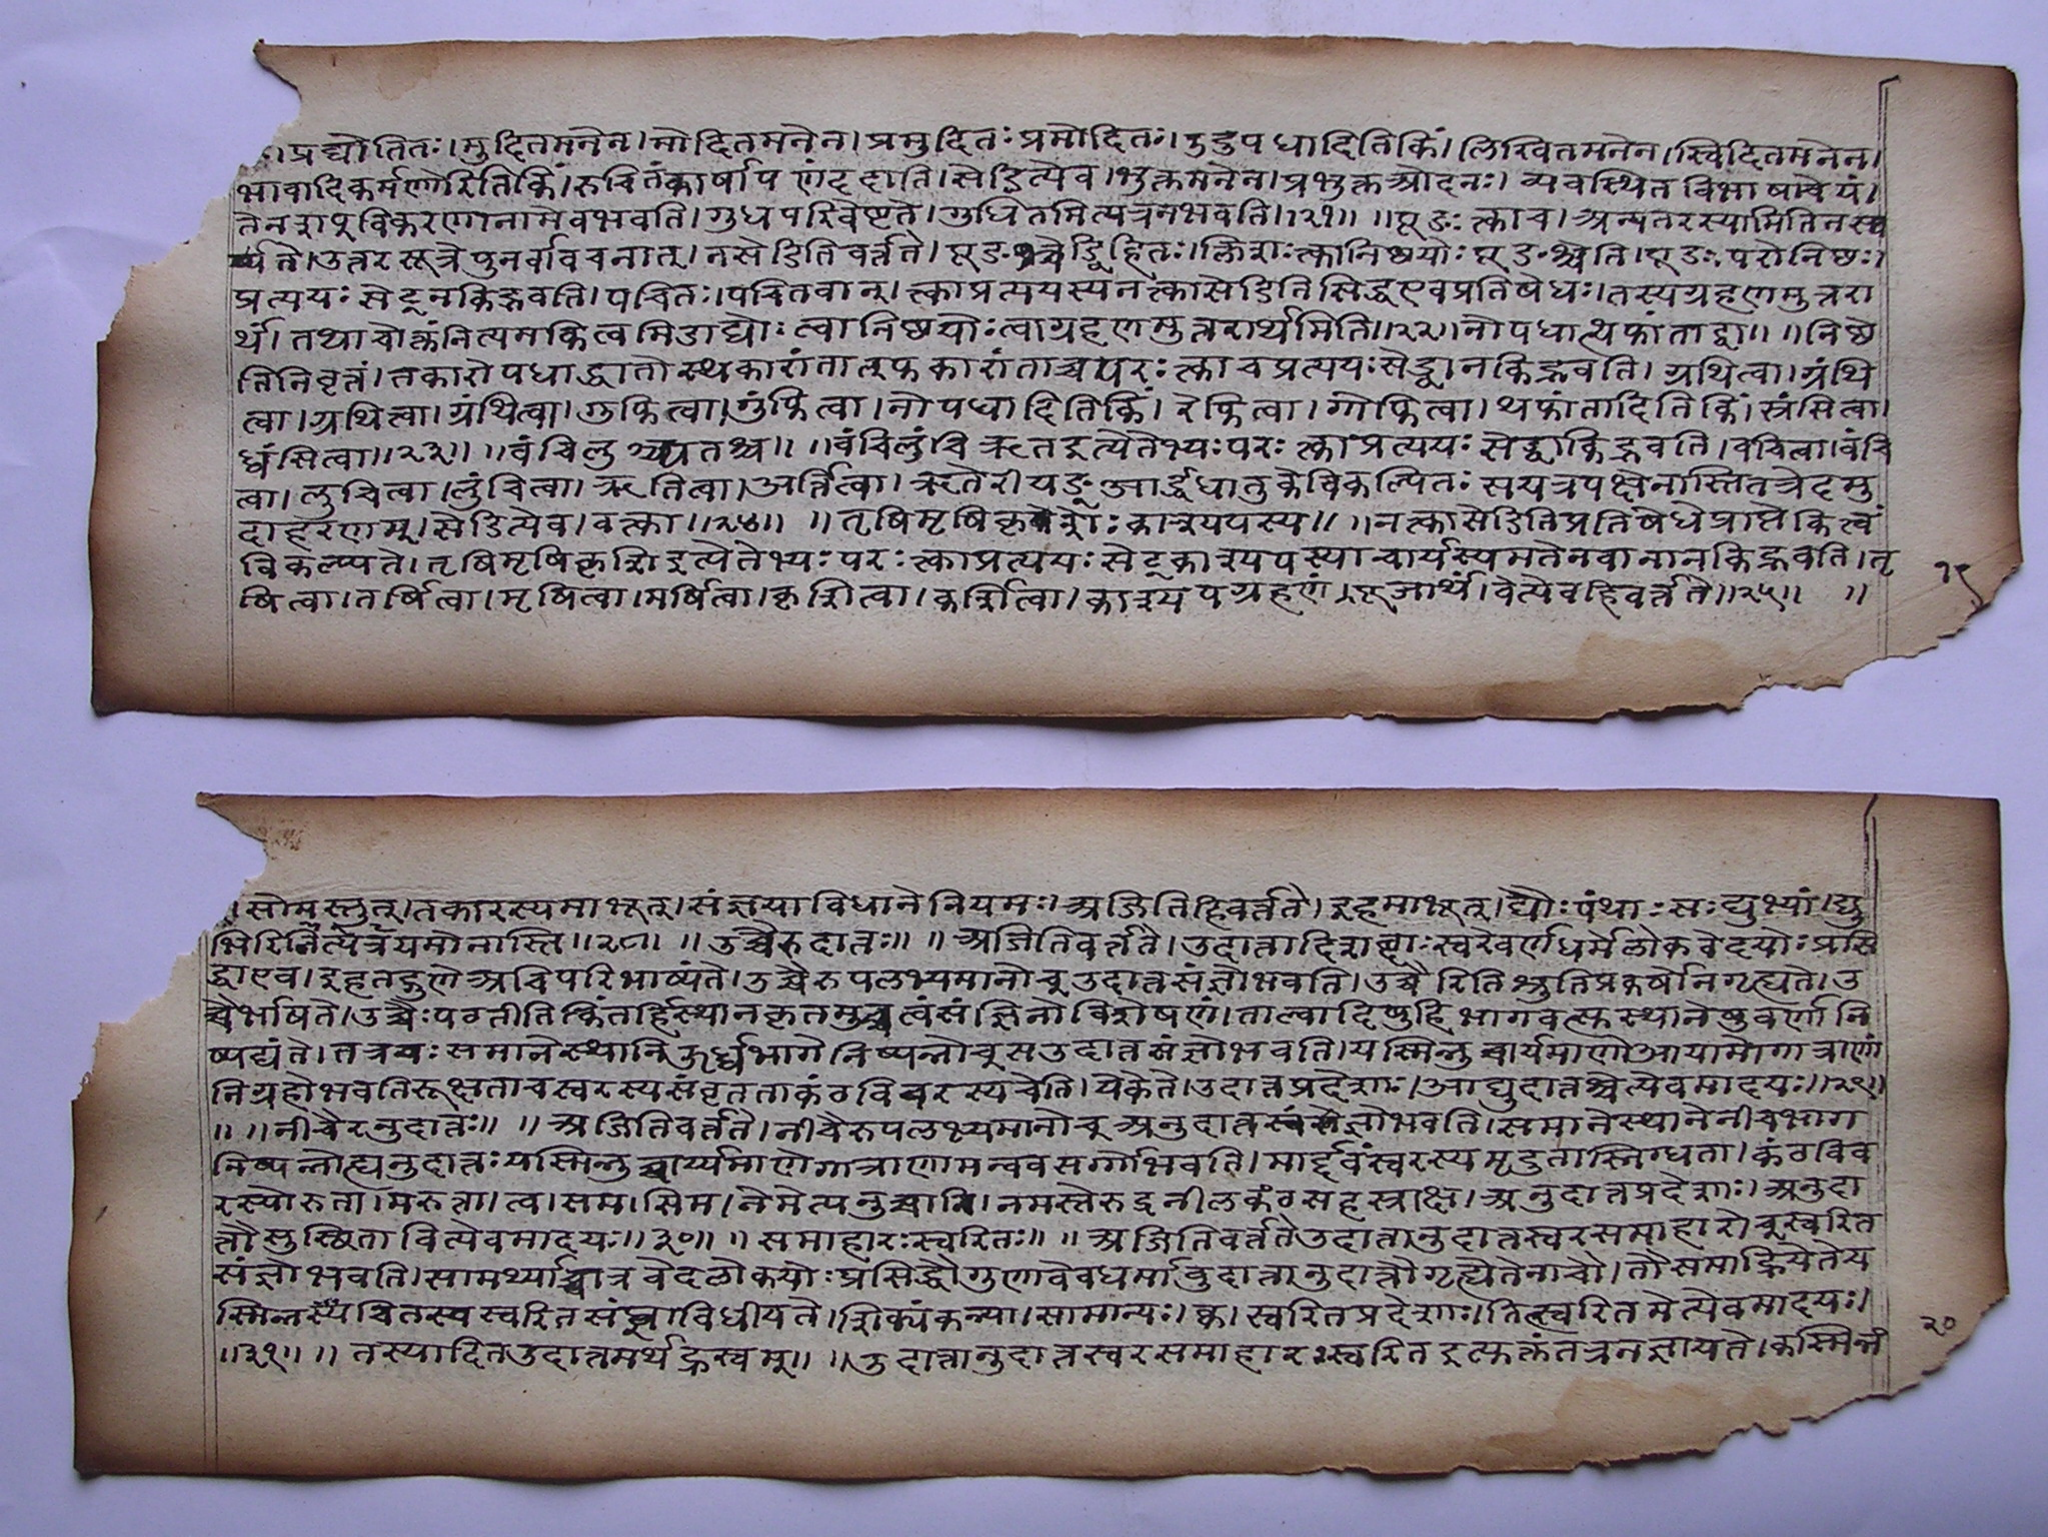 । प्रद्योतितः। मुदितमनेन। मोदितमनेन। प्रमुदितः प्रमोदितः। उदुपधादितिकिं। लिखितमनेन। स्विदितमनेन।
भावादिकर्मणोरितिकिं। रुचितंकार्षापणंददाति। सेडित्येव। भुक्तमनेन। प्रभुक्तओदनः। व्यवस्थितविभाषाचेयं।
तेनशब्विकरणानामेवभवति। गुधपरिवेष्टने। गुधितमित्यत्रनभवति।।२१।। ।। पूङः त्काच। अन्यतरस्यामितिनस्व
र्यते। उत्तरसूत्रेपुनर्वावचनात्। नसेडितिवर्त्तते। पूङश्चेड्विहितः। क्लिशःत्कानिष्ठयोः पूङश्चेति। पूङः परोनिष्ठः।
प्रत्ययः सेट्नकिद्भवति। पवितः। पवितवान्। त्काप्रत्ययस्यनत्कासेडितिसिद्धएवप्रतिषेधः। तस्यग्रहणमुत्तरा
र्थं। तथाचोक्तंनित्यमकित्वमिडाद्योः त्वानिष्ठयोः त्वाग्रहणमुत्तरार्थमिति।।२२।। नोपधात्थफांताद्वा।। ।। निष्ठे
तिनिवृत्तं। नकारोपधाद्धातोस्थकारांतात्फकारांताच्चपरः त्काचप्रत्ययः सेड्वानकिद्भवति। ग्रथित्वा। ग्रंथि
त्वा। ग्रथित्वा। ग्रंथित्वा। गुफित्वा। गुंफित्वा। नोपधादितिकिं। रेफित्वा। गोफित्वा। थफांतादितिकिं। स्रंसित्वा।
ध्वंसित्वा।।२३।। ।। वंचिलुंच्यृतश्च।। ।। वंचिलुंचिऋतइत्येतेभ्यः परः त्काप्रत्ययः सेड्वाकिद्भवति। वचित्वा। वंचि
त्वा। लुचित्वा। लुंचित्वा। ऋतित्वा। अर्तित्वा। ऋतेरीयङ्आर्द्धधातुकेविकल्पितः सयत्रपक्षेनास्तितत्रेदमु
दाहरणम्। सेडित्येव। वक्त्वा।।२४।। ।। तृषिमृषिकृशेः काश्यपस्य।। ।। नत्कासेडितिप्रतिषेधेप्राप्तेकित्वं
विकल्प्यते। तृषिमृषिकृशिइत्येतेभ्यः परः त्काप्रत्ययः सेट्काश्यपस्याचार्यस्यमतेनवानानकिद्भवति। तृ
षित्वा। तर्षित्वा। मृषित्वा। मर्षित्वा। कृशित्वा। कर्शित्वा। काश्यपग्रहणं। पूजार्थं। वेत्येवहिवर्त्तते।।२५।। ।।
१९
। सोमसुत्। तकारस्यमाभूत्। संज्ञयाविधानेनियमः। अजितिहिवर्त्तते। इहमाभूत्। द्यौः पंथाः सः द्युभ्यां। द्यु
भिरितित्यत्रनियमोनास्ति।।२८।। ।। उच्चैरुदात्तः।। ।। अजितिवर्त्तते। उदात्तादिशब्दाः स्वरेवर्णधर्मेलोकवेदयोः प्रसि
द्धाएव। इहतद्गुणेअचिपरिभाष्यंते। उच्चैरुपलभ्यमानोच्उदात्तसंज्ञोभवति। उच्चैरितिश्रुतिप्रकर्षोनगृह्यते। उ
च्चैर्भाषते। उच्चैः पठतीति। किंतर्हिस्थानकृतमुच्चत्वंसंज्ञिनोविशेषणं। ताल्वादिषुहिभागवत्सुस्थानेषुवर्णानि
ष्पद्यंते। तत्रयः समानेस्थानेऊर्ध्वभागेनिष्पन्नोच्सउदात्तसंज्ञोभवति। यस्मिन्नुच्चार्यमाणेआयामोगात्राणां
निग्रहोभवतिरूक्षताचस्वरस्यसंवृतताकंठविवरस्यचेति। येकेते। उदात्तप्रदेशाः। आद्युदात्तश्चेत्येवमादयः।।२९।।
।। ।। नीचैरनुदात्तः।। ।। अजितिवर्त्तते। नीचैरुपलभ्यमानोच्अनुदात्तसंज्ञोभवति। समानेस्थानेनीचभाग
निष्पन्नोह्यनुदात्तः यस्मिन्नुच्चार्य्यमाणेगात्राणामन्ववसर्गोभवति। मार्द्दवंस्वरस्यमृदुतास्निग्धता। कंठविव
रस्योरुता। मरुत्ता। त्व। सम। सिम। नेमेत्यनुच्चानि। नमस्तेरुद्रनीलकंठसहस्राक्ष। अनुदात्तप्रदेशाः। अनुदा
त्तौसुप्पितावित्येवमादयः।।३०।। ।। समाहारः स्वरितः।। ।। अजितिवर्त्ततेउदात्तानुदात्तस्वरसमाहारोच्स्वरित
संज्ञोभवति। सामर्थ्याच्चात्रवेदलोकयोः प्रसिद्धौगुणावेवधर्मावुदात्तानुदात्तौगृह्येतेनाचौ। तौसमाह्रियेतेय
स्मिन्नचितस्यस्वरितसंज्ञाविधीयते। शिक्यंकन्या। सामान्यः। क्व। स्वरितप्रदेशाः। तित्स्वरितमेत्येवमादयः।
।।३१।। ।। तस्यादितउदात्तमर्धह्रस्वम्।। ।। उदात्तानुदात्तस्वरसमाहारः स्वरितइत्युक्तंतत्रनज्ञायते। कस्मिन्नं
२०